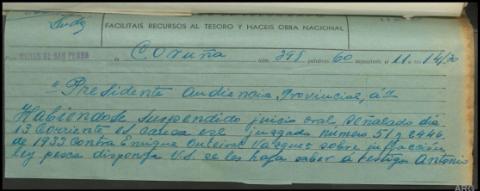 FACILITAIS RECURSOS AL TESORO Y HACEIS OBRA NACIONAL
Coruña núm. 398 palabras 60 depositado el 11 a las 14/20
"Presidente Audiencia Provincial, a
Habiendose suspendido juicio oral señalado dia
13 corriente es causa juzgado numero 51 2446
de 1933 contra Enrique Outeiral Vazquez sobre infracción
ley pesca disponga V.S. se les haga saber a testigos Antonio